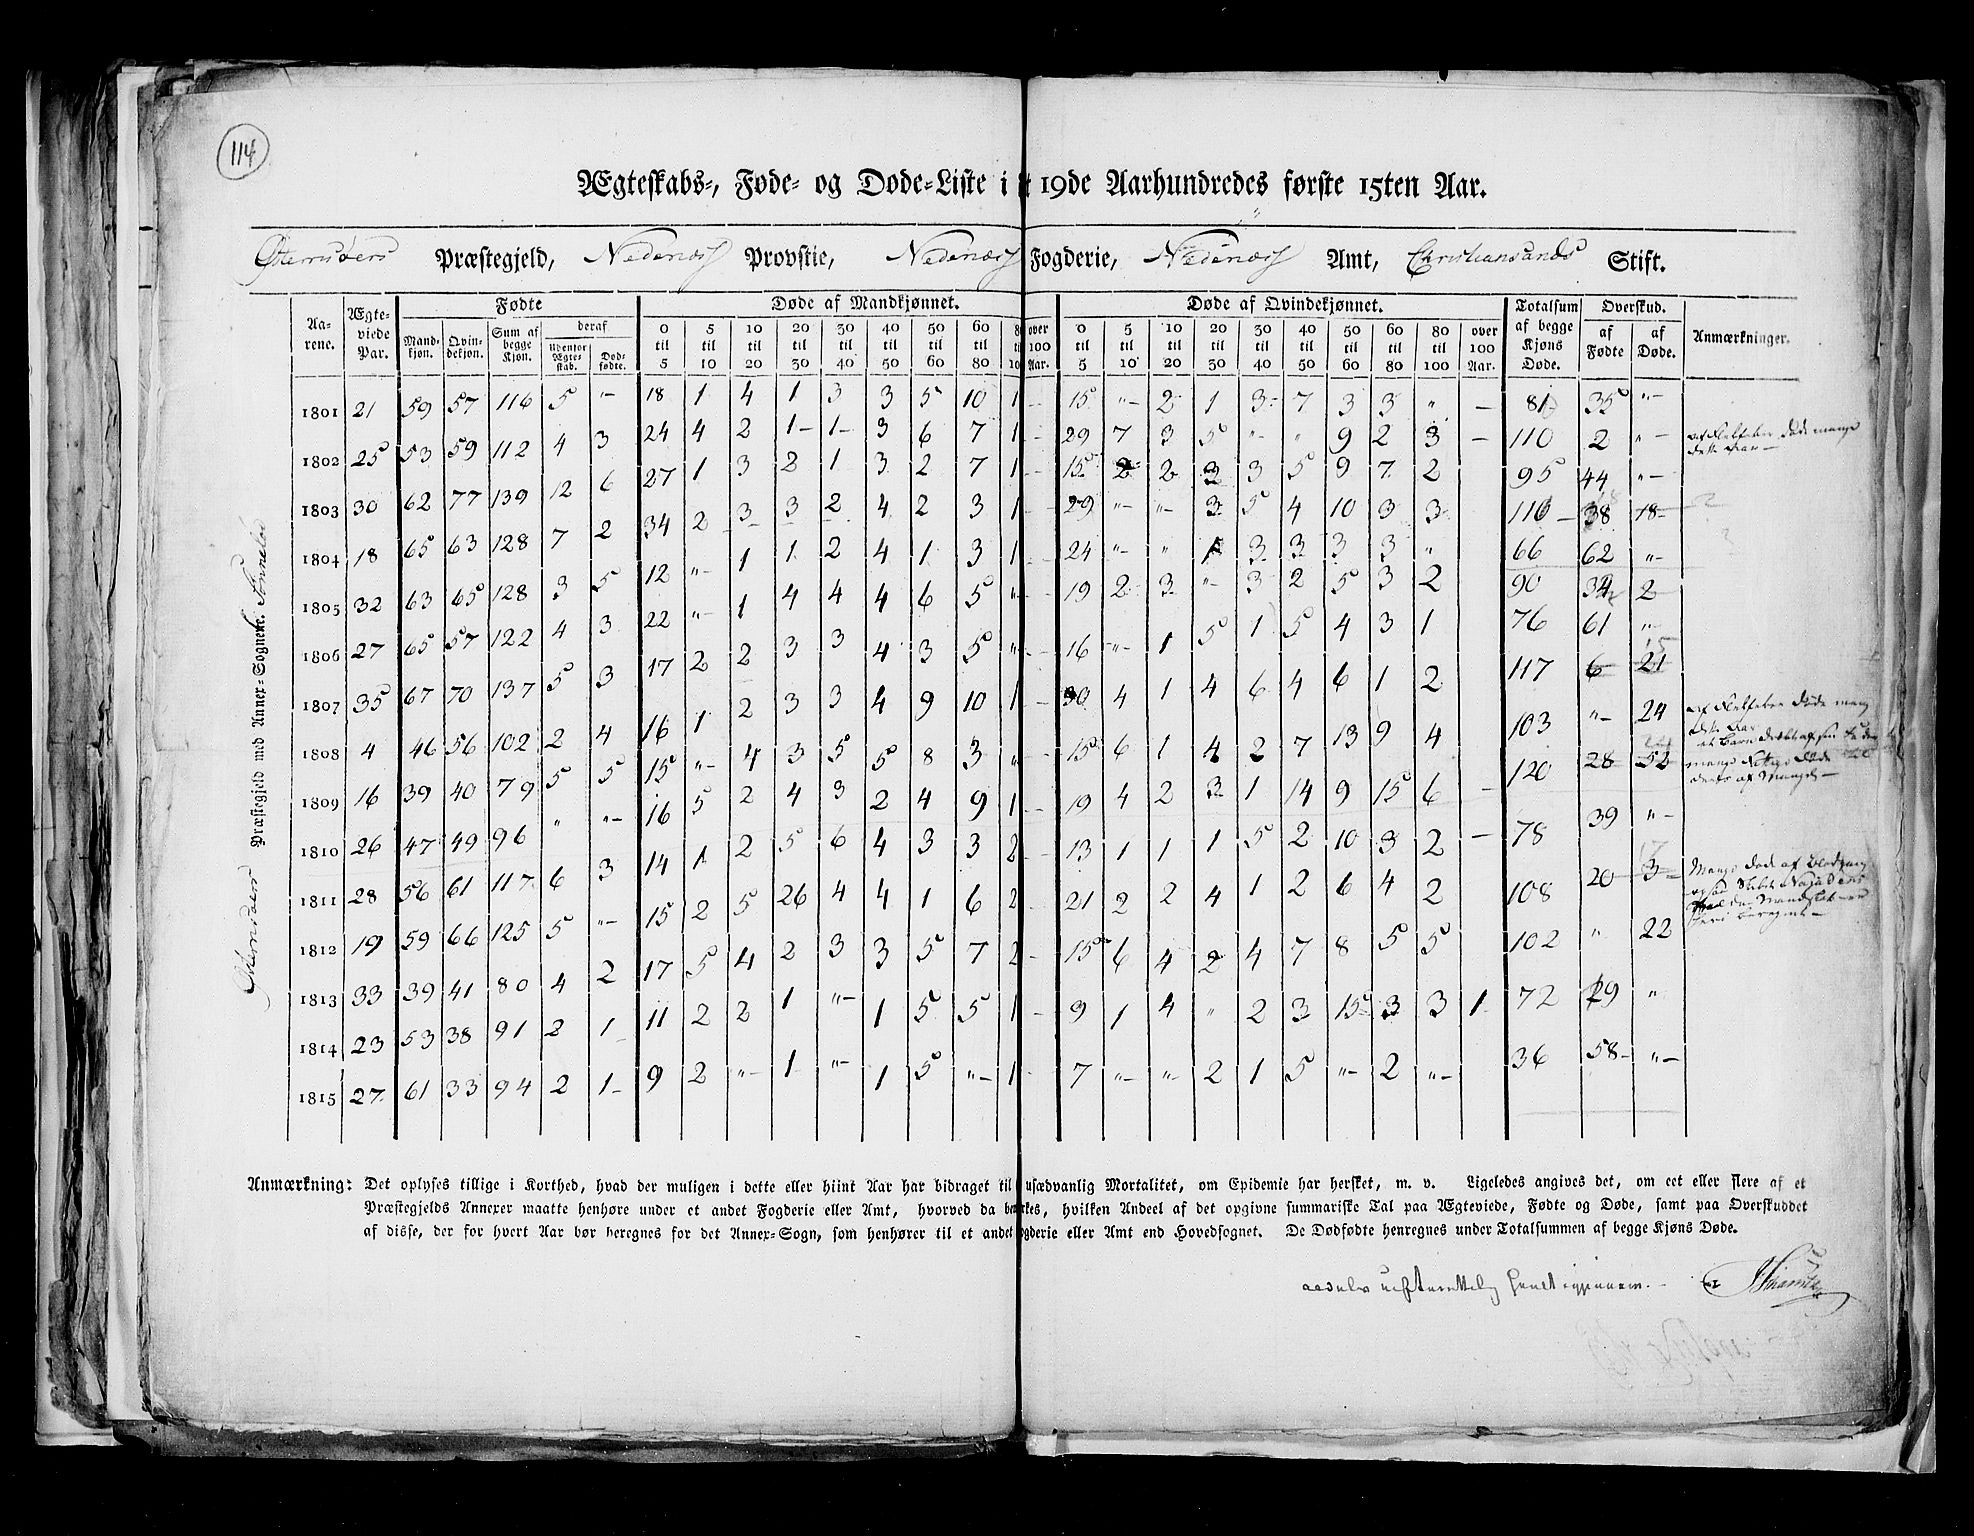 114
Ægteskabs-, Føde- og Døde-Liste i 19de Aarhundredes første 15ten Aar.
Østerrisøers Præstegjeld, Nedenæs Provstie, Nedenæs Fogderie, Nedenæs Amt, Christiansands Stift.
Østerrisøers Præstegjeld med Annex-Sognene:
Aarene. Ægteviede Par. Fødte Døde af Mandkjønnet. Døde af Qvindekjønnet. Totalsum af begge Kjøns Døde. Overskud. Anmærkninger.
Mandkjøn. Qvindekjøn. Sum af begge Kjøn. deraf udenfor Ægteskab. Dødfødte. 0 til 5 5 til 10 10 til 20 20 til 30 30 til 40 40 til 50 50 til 60 60 til 80 8 ti 10 over 100 Aar. 0 til 5 5 til 10 10 til 20 20 til 30 30 til 40 40 til 50 50 til 60 60 til 80 80 til 100 over 100 Aar. af Fødte af Døde.
1801 21 59 57 116 5 "- 18 1 4 1 3 3 5 10 1 - 15 "- 2 1 3 7 3 3 " - 81 35 "-
1802 25 53 59 112 4 3 24 4 2 1 1 3 6 7 1 - 29 7 3 5 " " 9 2 3 - 110 2 "- døde mange
dette Aar -
1803 30 62 77 139 12 6 27 1 3 2 1 3 2 7 1 - 15 2 2 3 3 5 9 7 2 95 44 "-
1804 18 65 63 128 7 2 34 2 3 3 2 4 2 3 1 - 29 "- "- 3 5 4 10 3 3 116 38 18
1805 32 63 65 128 3 5 12 "- 1 1 2 4 1 3 1 - 24 "- " 1 3 3 3 3 " 66 62 "-
1806 27 65 57 122 4 3 22 "- 1 4 4 4 6 5 "- 19 2 3 "- 3 2 5 3 2 90 34 2
1807 35 67 70 137 5 3 17 2 2 3 3 4 3 5 "- 16 "- 1 5 1 5 4 3 1 76 61 "-
1808 4 46 56 102 2 4 16 1 2 3 3 4 9 10 1 - 30 4 1 4 6 4 6 1 2 117 6 21
1809 16 39 40 79 5 5 15 "- 4 3 5 5 8 3 " 15 6 1 4 2 7 13 9 4 103 "- 24
1810 26 47 49 96 " "- 16 5 2 4 3 2 4 9 1 - 19 4 2 3 1 14 9 15 6 - 120 28 52
1811 28 56 61 117 6 3 14 1 2 5 6 4 3 3 2 - 13 1 1 1 5 2 10 3 2 - 78 39 "-
1812 19 59 66 125 5 "- 15 2 5 26 4 4 1 6 2 - 21 2 2 4 1 2 6 4 2 108 20 3
1813 33 39 41 80 4 2 17 5 4 2 3 3 5 7 2 - 15 6 4 2 4 7 8 5 5 102 " 22
1814 23 53 38 91 2 1 11 2 2 1 "- 1 5 5 1 - 9 1 4 " 2 3 15 3 3 1 72 19 "
1815 27 61 33 94 2 1 9 2 "- 1 "- 1 5 "- 1 - 7 "- "- 2 1 5 "- 2 "- 36 58 "-
Anmærkning: Det oplyses tillige i Korthed, hvad der muligen i dette eller hiint Aar har bidraget til usædvanlig Mortalitet, om Epidemie har hersket, m. v. Ligeledes angives det, om eet eller flere af et
Præstegjelds Annexer maatte henhøre under et andet Fogderie eller Amt, hvorved da be rkes, hvilken Andeel af det opgivne summariske Tal paa Ægteviede, Fødte og Døde, samt paa Overskuddet
af disse, der for hvert Aar bør beregnes for det Annex-Sogn, som henhører til et andet gderie eller Amt end Hovedsognet. De Dødfødte henregnes under Totalsummen af begge Kjøns Døde.